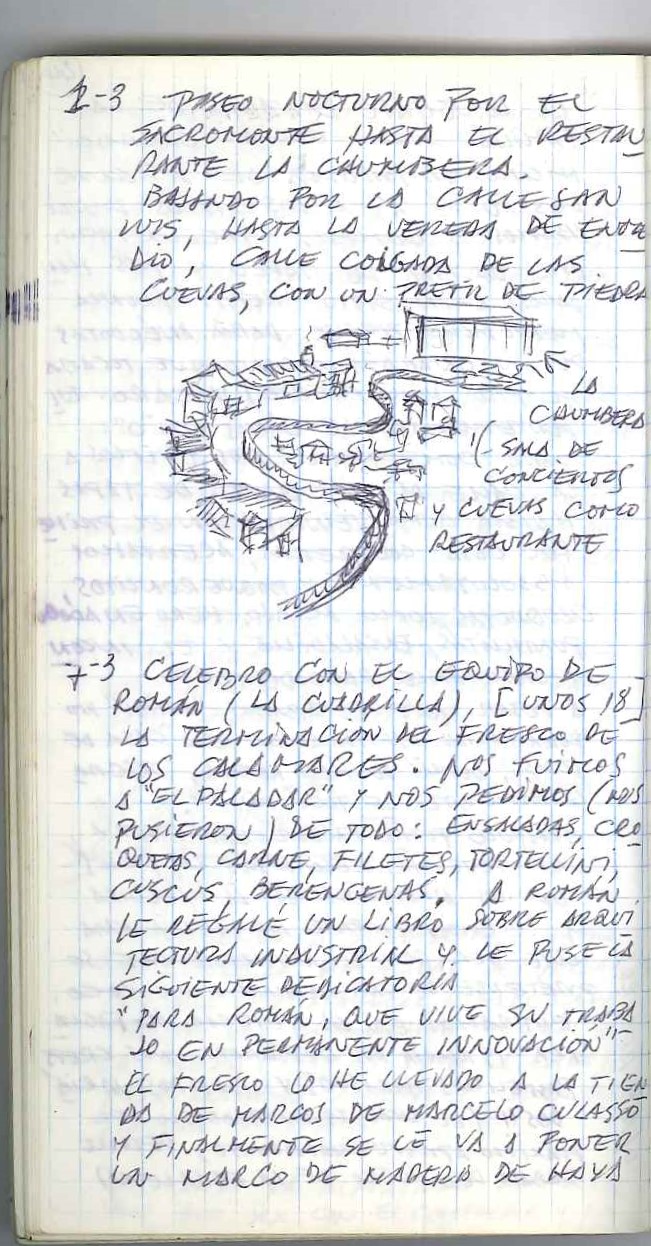 1-3 PASEO NOCTURNO POR EL
SACROMONTE HASTA EL RESTAU
RANTE LA CHUMBERA.
BAJANDO POR LA CALLE SAN
LUIS, HASTA LA VEREDA DE ENME
DIO, CALLE COLGADA DE LAS
CUEVAS, CON UN PRETIL DE PIEDRA
LA
CHUMBERA
(SALA DE
CONCIERTOS
Y CUEVAS COMO
RESTAURANTE
7-3 CELEBRO CON EL EQUIPO DE
ROMÁN (LA CUADRILLA), [UNOS 18]
LA TERMINACIÓN DEL FRESCO DE
LOS CALAMARES. NOS FUIMOS
A "EL PALADAR" Y NOS PEDIMOS (NOS
PUSIERON) DE TODO: ENSALADAS, CRO
QUETAS, CARNE, FILETES, TORTELLINI,
CUSCUS, BERENGENAS. A ROMÁN
LE REGALÉ UN LIBRO SOBRE ARQUI
TECTURA INDUSTRIAL Y LE PUSE LA
SIGUIENTE DEDICATORIA
"PARA ROMÁN, QUE VIVE SU TRABA
JO EN PERMANENTE INNOVACIÓN"
EL FRESCO LO HE LLEVADO A LA TIEN
DA DE MARCOS DE MARCELO CULASSO
Y FINALMENTE SE LE VA A PONER
UN MARCO DE MADERA DE HAYA